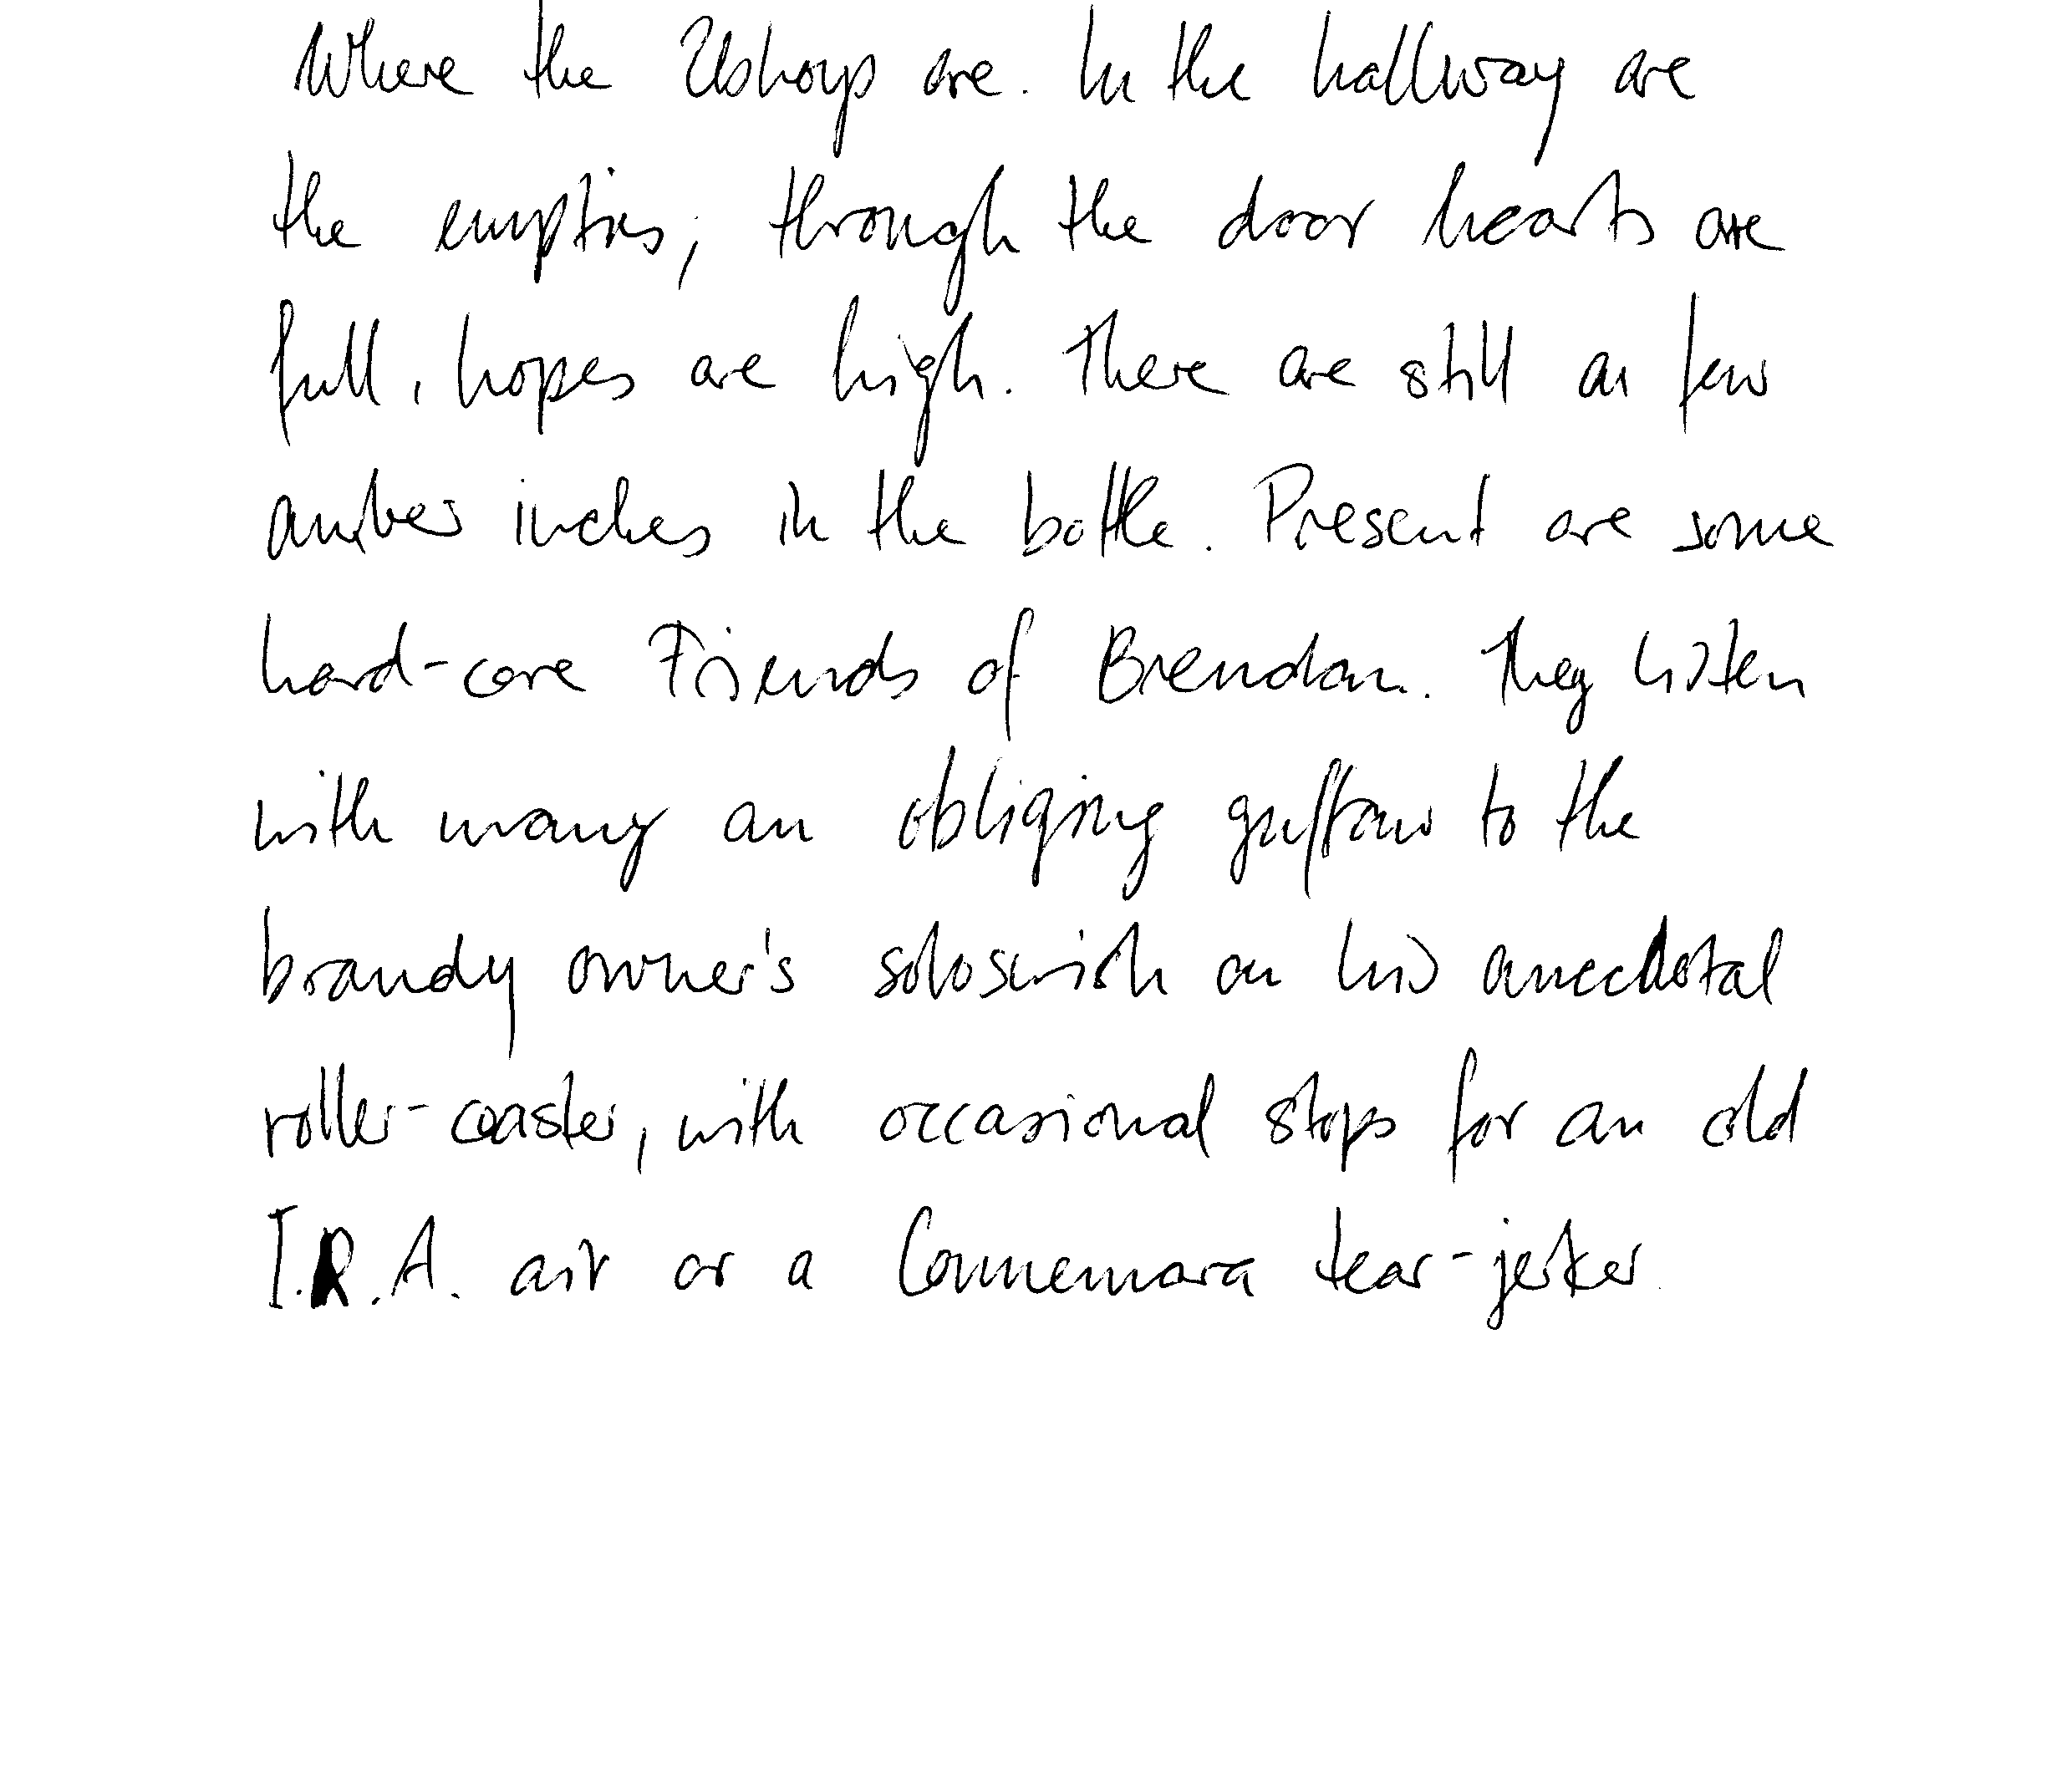 Where the Ushays are. In the hallway are
the empties; through the door hearts are
full, hopes are high. There are still a few
amber inches in the bottle. Present are some
hard-core Friends of Brendan. They listen
with many an obliging guffaw to the
brandy owner's soloswish on his anecdotal
roller-coaster, with occasional stops for an old
I.R.A. air or a Connemara tear-jerker.